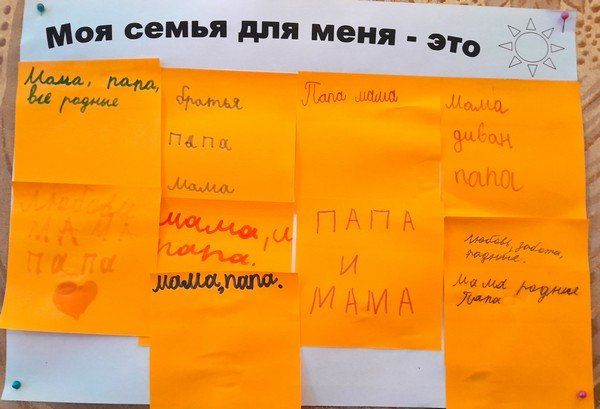 Моя семья для меня - это
Мама, папа,
все родные
братья
папа
мама
Папа мама
мама
диван
папа
Любовь
МАМА
ПАПА
мама, и
папа.
мама, папа.
ПАПА
И
МАМА
любовь, забота,
родные.
мама родные
Папа